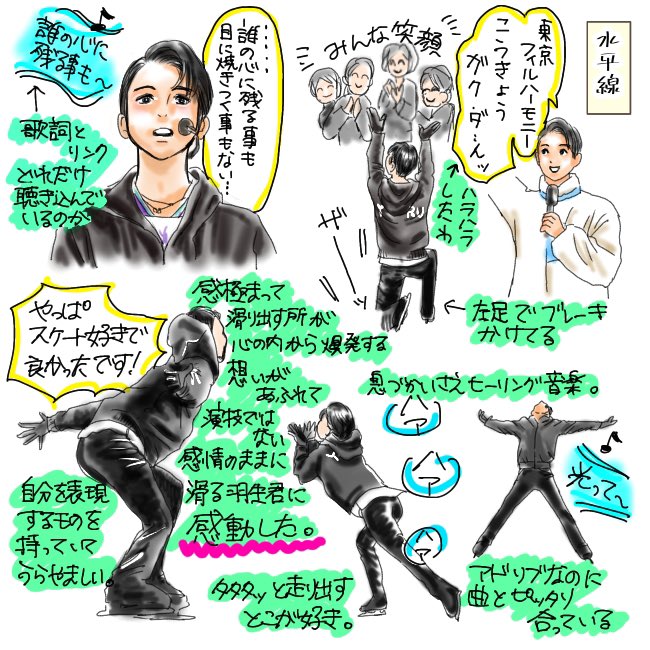 水平線
東京
フィルハーモニー
こうきょう
ガクダ…んッ
みんな笑顔
ハラハラ
したわ
ザーーッ
左足でブレーキ
かけてる
誰の心に
残る事も〜
‥‥‥
誰の心に残る事も
目に焼きつく事もない…
↑
歌詞と
リンク
どれだけ
聴き込んで
いるのか
やっぱ
スケート好きで
良かったです!
感極まって
滑り出す所が
心の内から爆発する
想いが
あふれて
演技では
ない
感情のままに
滑る羽生君に
感動した。
自分を表現
するものを
持っていて
うらやましい。
タタタッと走り出す
とこが好き。
息づかいさえセーリング音楽。
ハァ
ハァ
ハァ
光って〜
アドリブなのに
曲とピッタリ
合っている